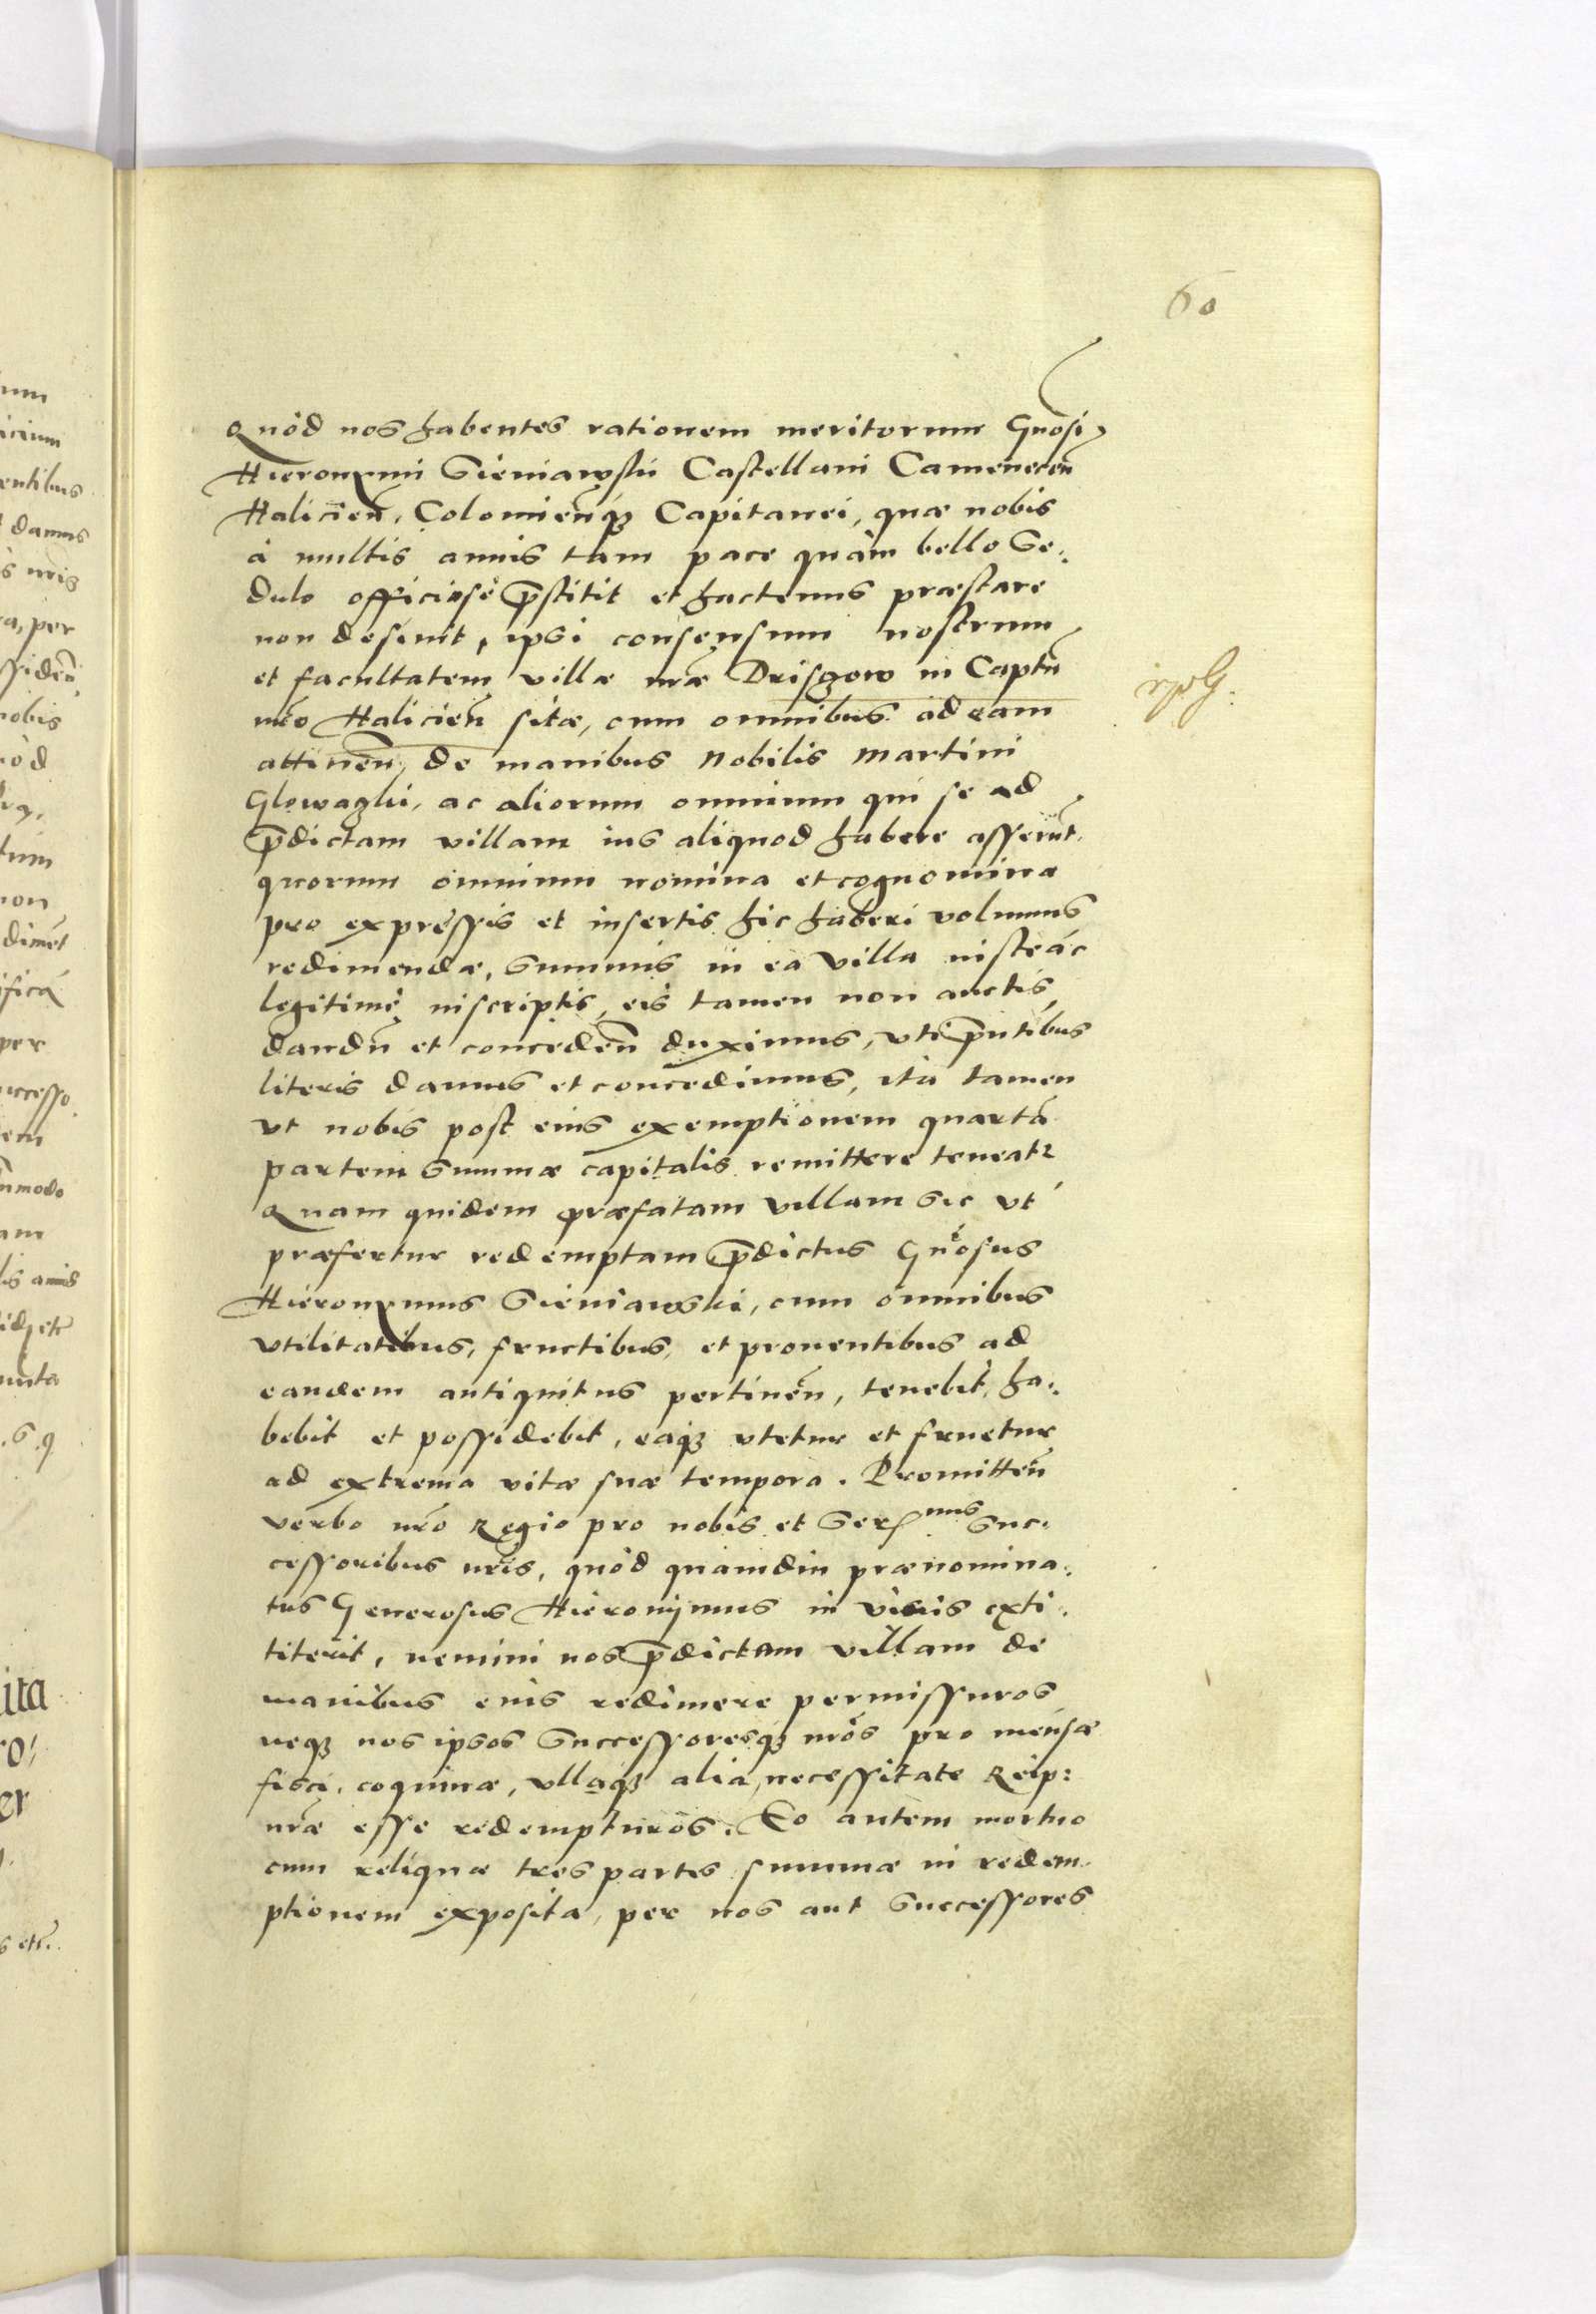 60
Quòd nos habentes rationem meritorum Gnosi
Hieronymi Sieniawskii Castellani Camenecen̄
Halicien̄, Colomien̄q₃ Capitanei, quæ nobis
à multis annis tam pace quàm bello se:
dulo officiosè p̄stitit et hactenus præstare
non desinit, ipsi consensum nostrum
et facultatem villæ nr̄æ Drisczow in Captū
nr̄o Halicien̄ sitæ, cum omnibus ad eam
attinen̄, de manibus Nobilis Martini
Glowaczki, ac aliorum omnium qui se ad
p̄dictam villam ius aliquod habere asserūt.
quorum omnium nomina et cognomina
pro expressis et insertis hic haberi volumus
redimendæ, summis in ea villa iustè ac
legitimè inscriptis, eis tamen non auctis
dandn̄ et conceden̄ duximus, uti p̄ntibus
literis damus et concedimus, ita tamen
ut nobis post eius exemptionem quartā
partem summæ capitalis remittere teneatr
Quam quidem præfatam villam sic ut
præfertur redemptam p̄dictus Gn̄osus
Hieronymus Sieniawski, cum omnibus
utilitatibus, fructibus, et prouentibus ad
eandem antiquitus pertinen̄, tenebit, ha:
bebit et possidebit, eaq₃ utetur et fruetur
ad extrema vitæ suæ tempora. Promitten̄
verbo nr̄o Regio pro nobis et Ser.mis Suc:
cessoribus nr̄is, quòd quamdiu prænomina:
tus Generosus Hieronymus in viuis exti:
titerit, nemini nos p̄dictam villam de
manibus eius redimere permissuros
neq₃ nos ipsos Successoresq₃ nr̄os pro mensæ
fisci, coquinæ, ullaq₃ alia necessitate Reip:
nr̄æ esse redempturos. Eo autem mortuo
cum reliquæ tres partes summæ in redem
ptionem exposita, per nos aut Successores